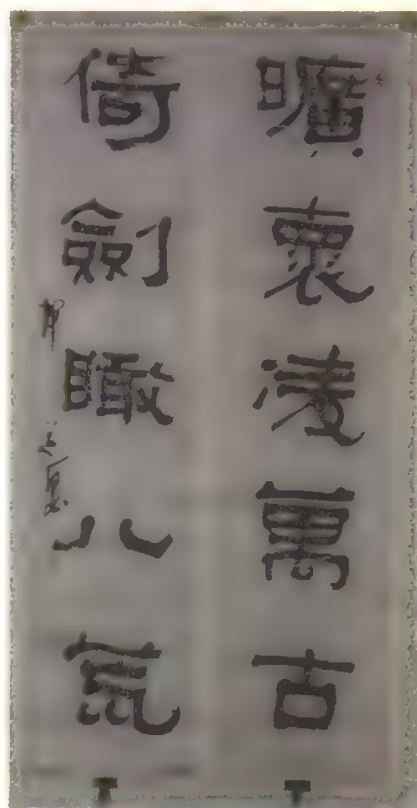 曠裹凌萬古
倚劍瞰八荒